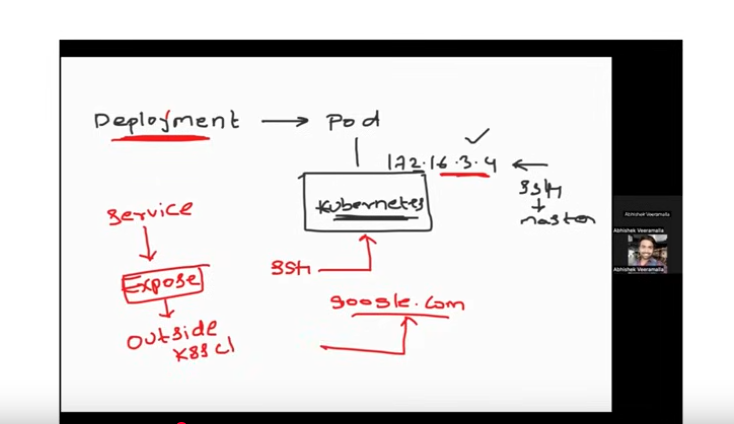 Deployment → Pod
172.16.3.4 ←
SSH
master
Kubernetes
Service
Expose
Outside
K8S Cl
SSH
google.com
Abhishek Veeramalla
Abhishek Veeramalla
Abhishek Veeramalla